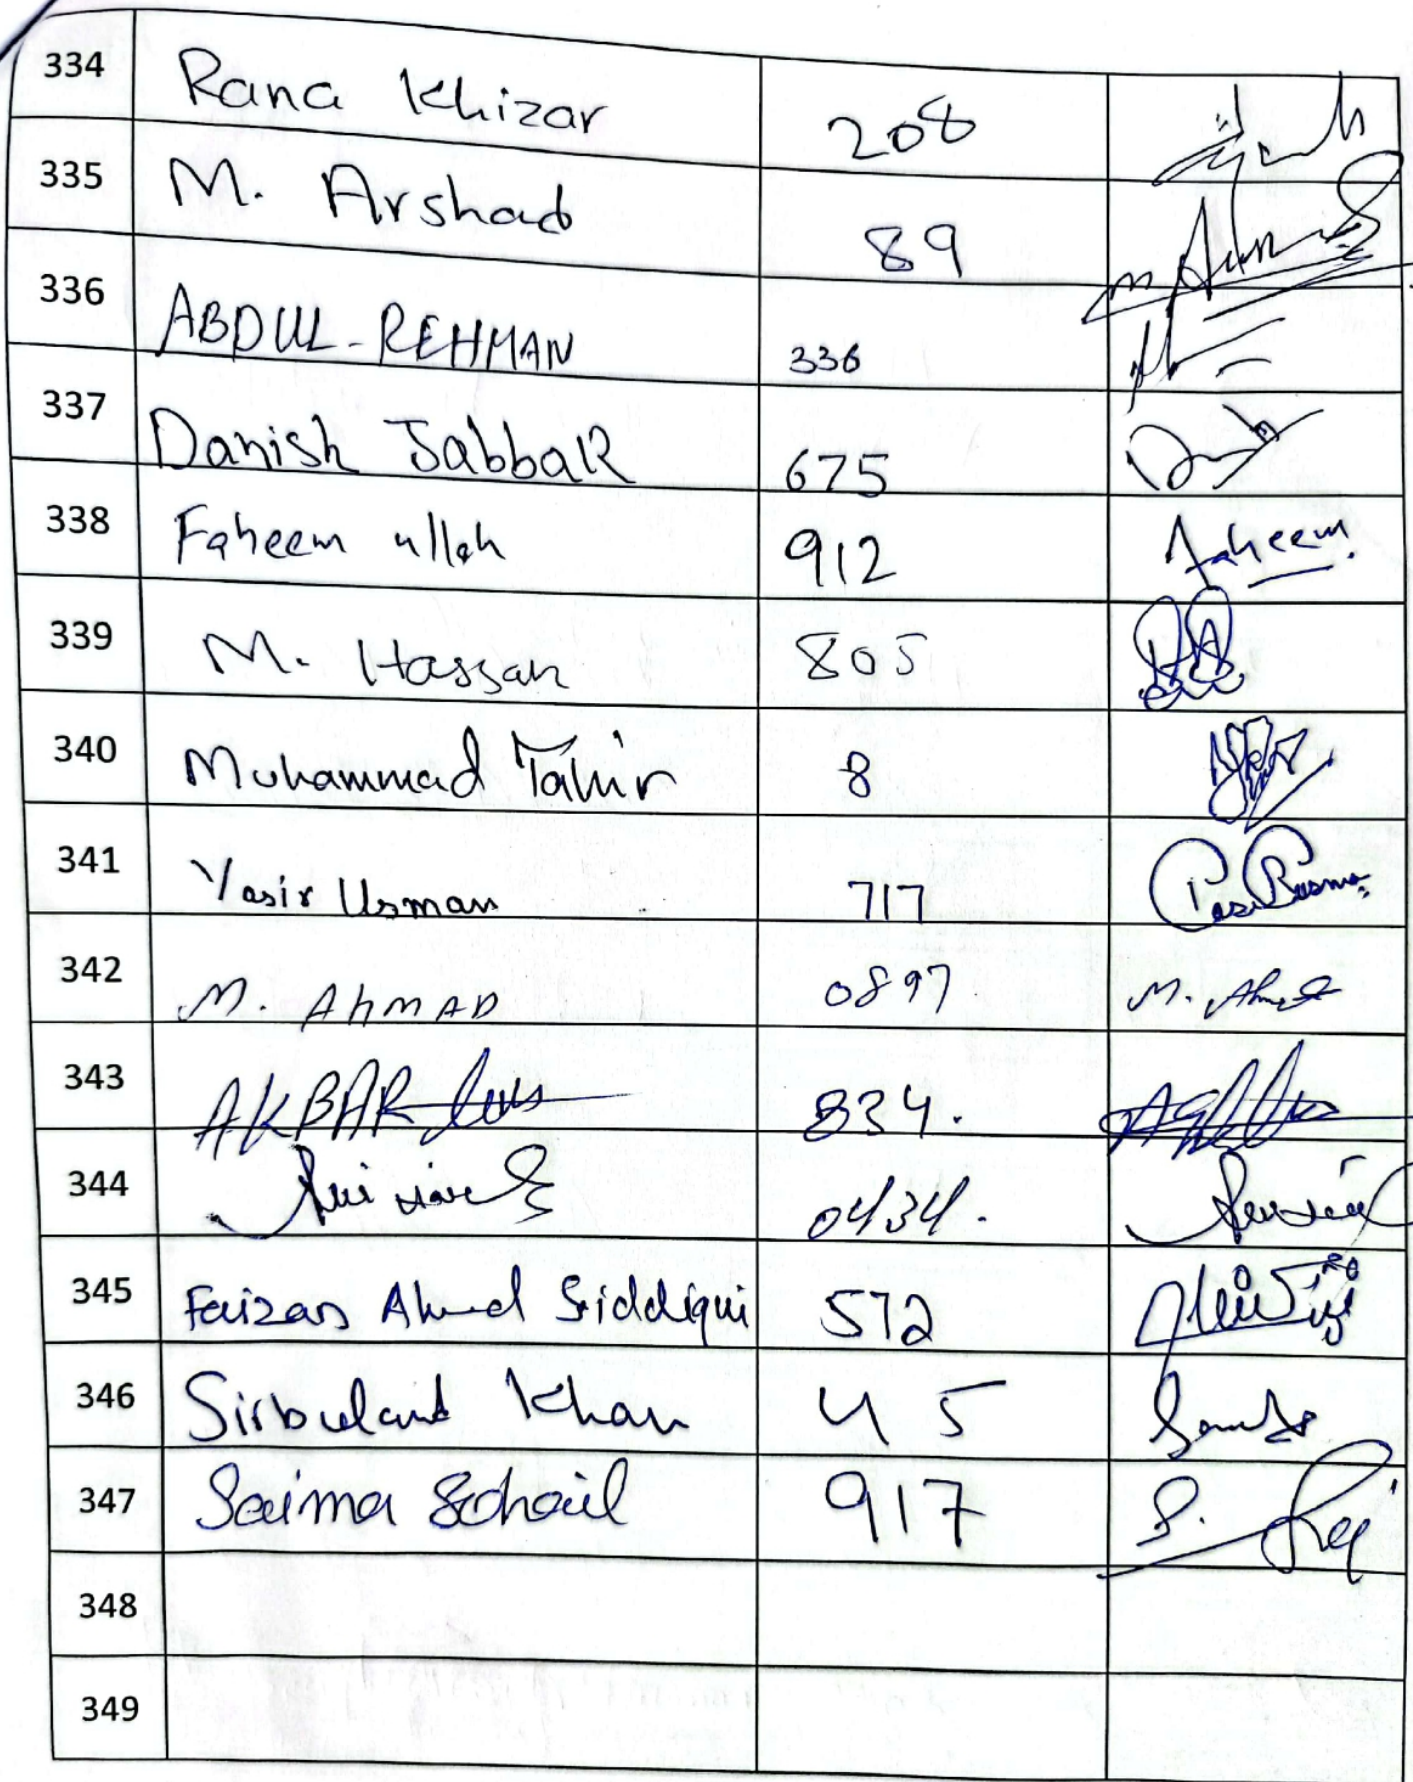 334 Rana Khizar 208
335 M. Arshad 89
336 ABDUL-REHMAN 336
337 Danish JabbaR 675
338 Faheem ullah 912 Faheem
339 M. Hassan 805
340 Muhammad Tahir 8
341 Yasir Usman 717
342 M. AhMAD 0897 M. Ahmad
343 AKBAR 834.
344 0434.
345 Faizan Ahmed Siddiqui 572
346 Sirbuland Khan 45
347 Saima Sohail 917
348
349